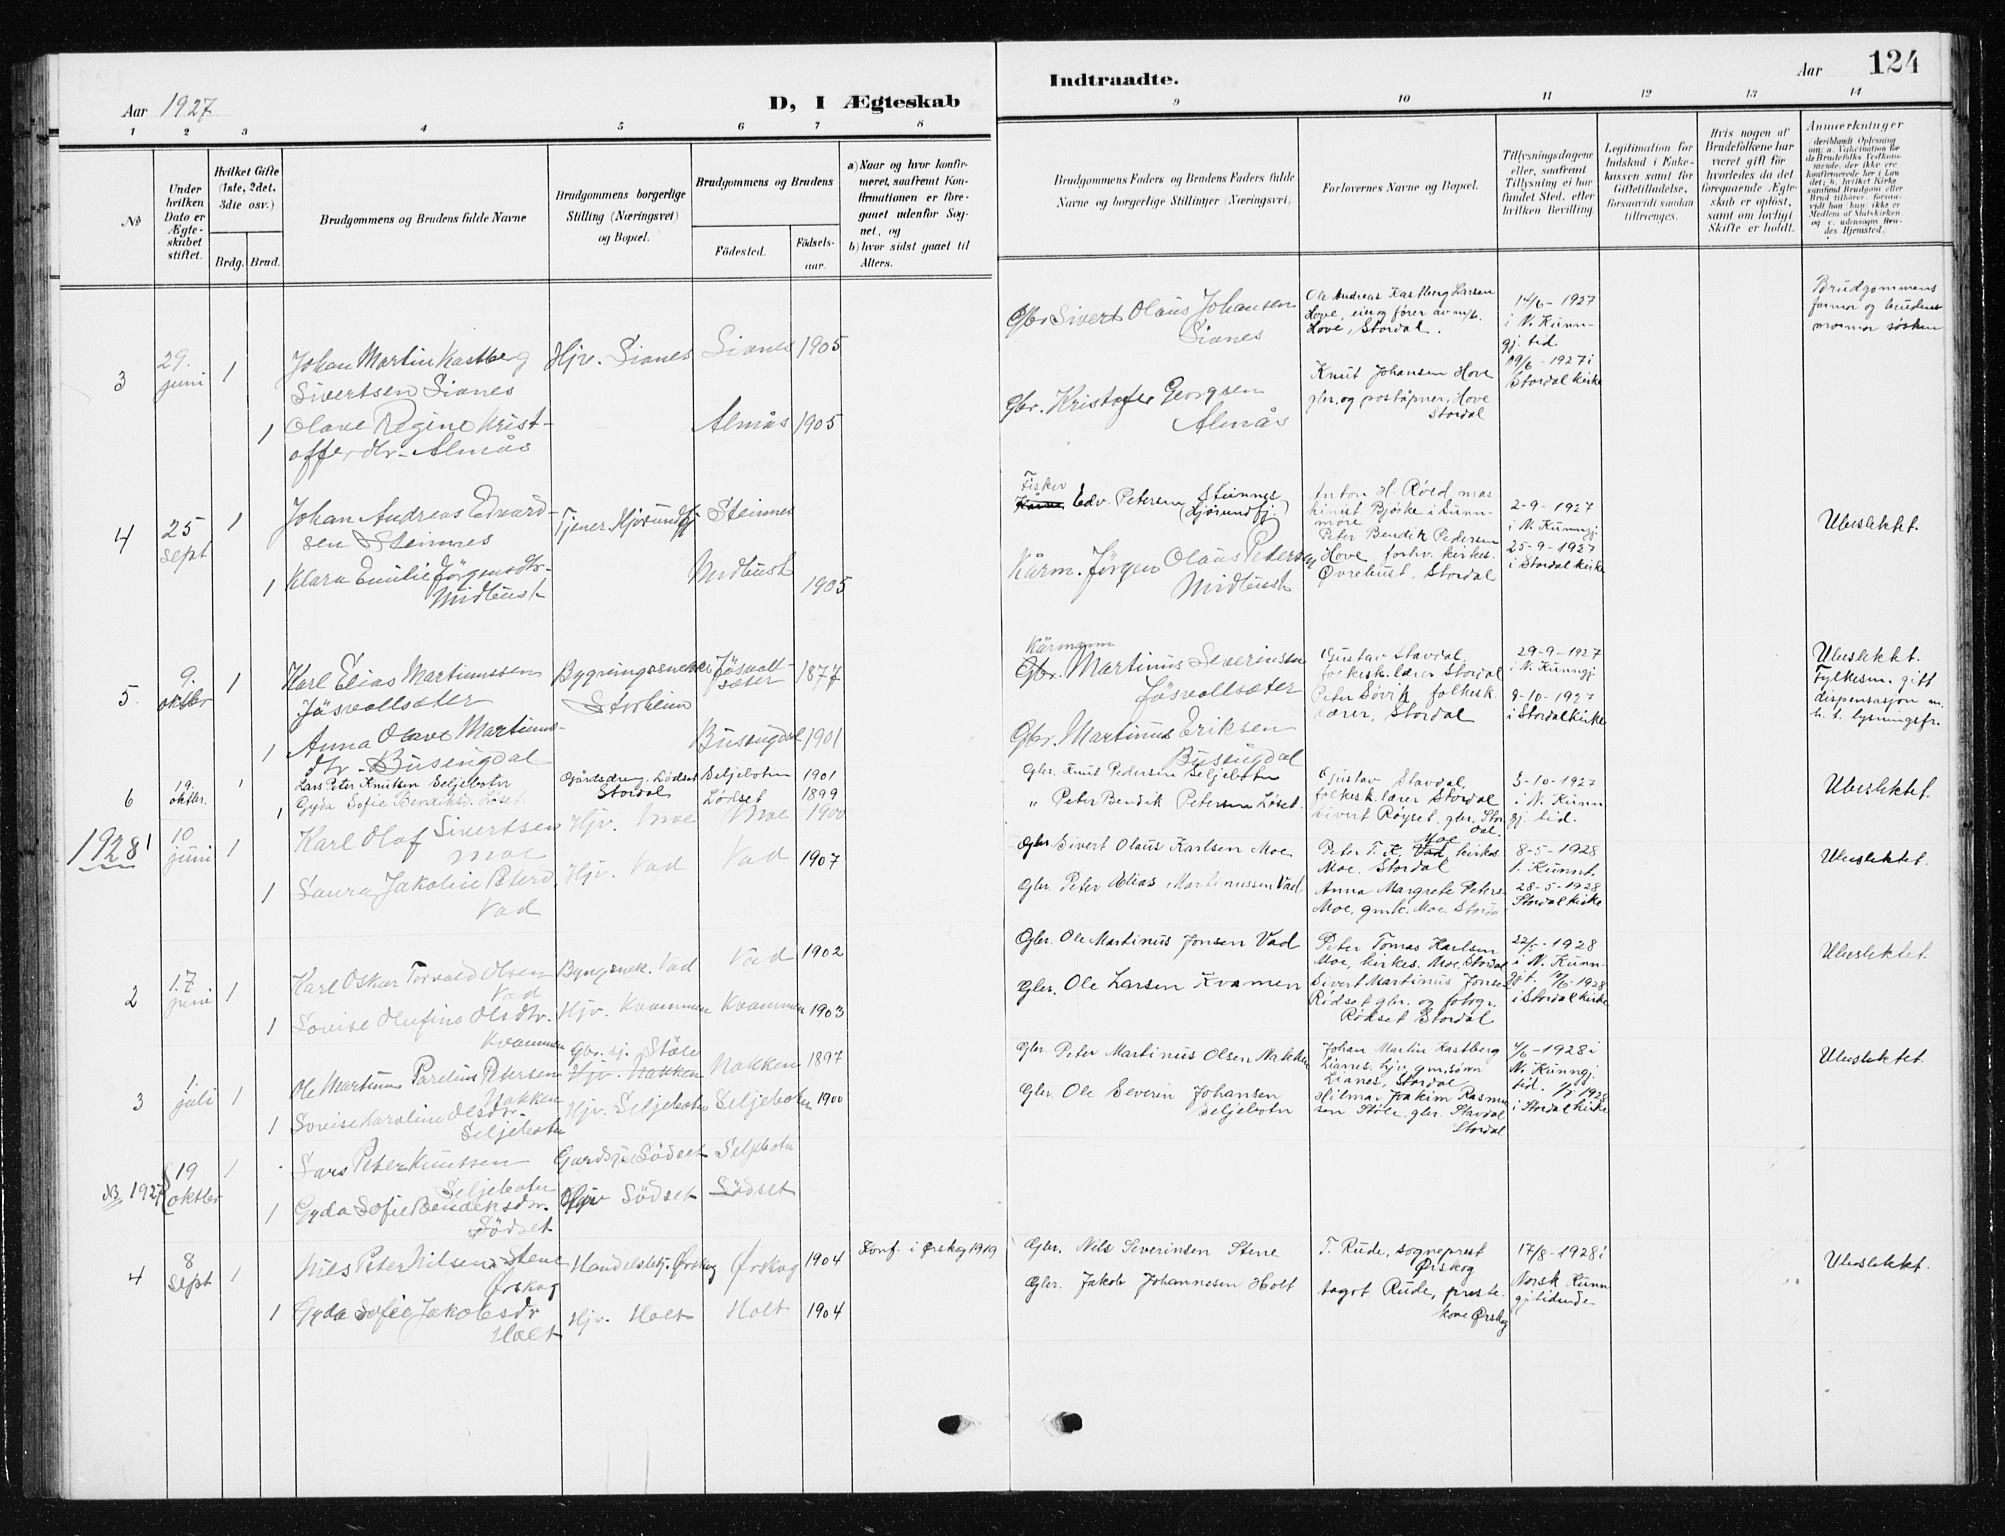 Aar 1927
D, I Ægteskab
Indtraadte.
Aar
124
1 2 3 4 5 6 7 8 9 10 11 12 13 14
No
Under hvilken Dato er Ægteskabet stiftet.
Hvilket Gifte (1ste, 2det, 3die osv.)
Brdg. Brud.
Brudgommens og Brudens fulde Navne
Brudgommens borgerlige Stilling (Næringsvei) og Bopæl.
Brudgommens og Brudens
Födested.
Födselsaar.
a) Naar og hvor konfirmeret, saafremt Konfirmationen er foregaaet udenfor Sognet, og
b) hvor sidst gaaet til Alters.
Brudgommens Faders og Brudens Faders fulde Navne og borgerlige Stillinger (Næringsvei)
Forlovernes Navne og Bopæl.
Tillysningsdagene eller, saafremt Tillysning ei har fundet Sted, efter hvilken Bevilling.
Legitimation for Indskud i Enkekassen samt for Giftetilladelse, forsaavidt saadan tiltrænges.
Hvis nogen af Brudefolkene har været gift för hvorledes da det foregaaende Ægteskab er oplöst, samt om lovligt Skifte er holdt.
Anmærkninger
3
29. juni
1
Johan Martin Kastberg
Sivertsen Lianes
Hjv. Lianes
Lianes
1905
Gbr. Sivert Olaus Johansen
Lianes
Ole Andreas Kastberg Larsen
Hove, eier og fører av m/k.
Hove, Stordal.
14/6 - 1927
i N. Kunn-
gj. tid.
Brudgommens
farmor og brudens
mormor søsken
1
Olave Regine Krist-
offerdtr. Almås
Almås
1905
Gbr. Kristofer Georgsen
Almås
Knut Johansen Hove
gbr. og poståpner, Hove
Stordal
19/6 - 1927 i
Stordal kirke
4
25 sept
1
Johan Andreas Edvard-
sen Steinnes
Tjener. Hjörundfj
Steinnes
Fisker
Edv. Petersen Steinnes
Hjörundfj.
Anton H. Röed mas
kinist Bjørke i Sunn-
møre
2-9-1927
i N. Kunngj.
Ubeslektet.
1
Klara Emilie Jörgensdtr.
Midtbust
Midtbust
1905
Kårm. Jörgen Olaus Petersen
Midtbust
Peter Bendik Pedersen
Hove, forhv. kirkes.
Övrebust. Stordal
25-9-1927
i Stordal kirke
5
9. oktbr
1
Karl Elias Martinussen
Jösvollsæter
Bygningssnekker
Storheim
Jösvoll-
sæter
1877
Kårmann
Gbr. Martinus Severinsen
Jösvollsæter
Gustav Stavdal,
folkesk.lærer Stordal
29-9-1927
i N. Kunngj.
Ubeslektet.
Fylkesm. gitt
dispensasjon m.
h. t. lysningsfr.
1
Anna Olave Martinus-
dtr. Busengdal
Busengdal
1901
Gbr. Martinus Eriksen
Busengdal
Peter Løvik folkesk.
lærer, Stordal
9-10-1927
i Stordal kirke
6
19. oktbr.
1
Lars Peter Knutsen Seljebotn
Gårdsdreng. Lödset
Stordal
Seljebotn
1901
Gbr. Knut Pedersen Seljebotn
Gustav Stavdal,
folkesk.lærer Stordal
3-10-1927
i N. Kunn
gj. tid.
Ubeslektet.
1
Gyda Sofie Bendiksd. Löset.
Lödset
1899
" Peter Bendik Petersen Löset.
Sivert Röyset, gbr. Stor
dal.
1928
1
10 juni
1
Karl Olaf Sivertsen
Moe
Hjv. Moe
Moe
1900
Gbr Sivert Olaus Karlsen Moe
Peter T. K. Moe kirkes.
Moe, Stordal
8-5-1928
Ubeslektet.
1
Laura Jakobine Petersd.
Vad
Hjv. Vad
Vad
1907
Gbr. Peter Elias Martinussen Vad
Anna Margrete Peters
Moe, gmk. Moe, Stordal
28-5-1928
Stordal kirke
2
17 juni
1
Karl Oskar Torvald Olsen
Vad
Byngsnek. Vad
Vad
1902
Gbr. Ole Martinus Jonsen Vad
Peter Tomas Karlsen
Moe, kirkes. Moe, Stordal
22/5 - 1928
i N. Kunn-
Ubeslektet.
1
Lovise Olufine Olsdtr.
Kvammen
Hjv. Kvammen
Kvammen
1903
Gbr. Ole Larsen Kvamen
Sivert Martinus Jonsen
Rödset gbr. og fotogr.
Rödset Stordal
i Stordal kirke
3
1. juli
1
Ole Martinus Parelius Petersen
Nakken
Gbr. sj. Stöle
Hjv. Nakken
Nakken
1897
Gbr Peter Martinus Olsen Nakken
Johan Martin Kastberg
Lianes, hjv. gm.sönn
Lianes, Stordal
4/6 - 1928 i
N. Kunngj.
tid.
Ubeslektet.
1
Lovise Karoline Olsdtr.
Seljebotn
Hjv. Seljebotn
Seljebotn
1900
Gbr. Ole Severin Johansen
Seljebotn
Hilmar Joakim Rasmus
sen Støle, gbr. Stavdal
Stordal
1/7 1928
i Stordal kirke
NB. 1927
19 oktbr
1
Lars Peter Knutsen
Seljebotn
Lödset
Seljebotn
1
Gyda Sofie Bendiksdtr.
Lödset
Hjv Lödset
Lödset
4
8 Sept
1
Nils Peter Nilsen Stene
Ørskog
Handelsbetj. Ørskog
Ørskog
1904
Konf. i Ørskog 1919
Gbr. Nils Severinsen Stene
T. Rude, sogneprest
Ørskog
17/8 - 1928 i
Norsk Kunn
gj.tidende-
Ubeslektet.
1
Gyda Sofie Jakobsdr
Holt
Hjv. Holt
Holt
1904
Gbr. Jakob Johannesen Holt
Rude, preste-
kone Ørskog